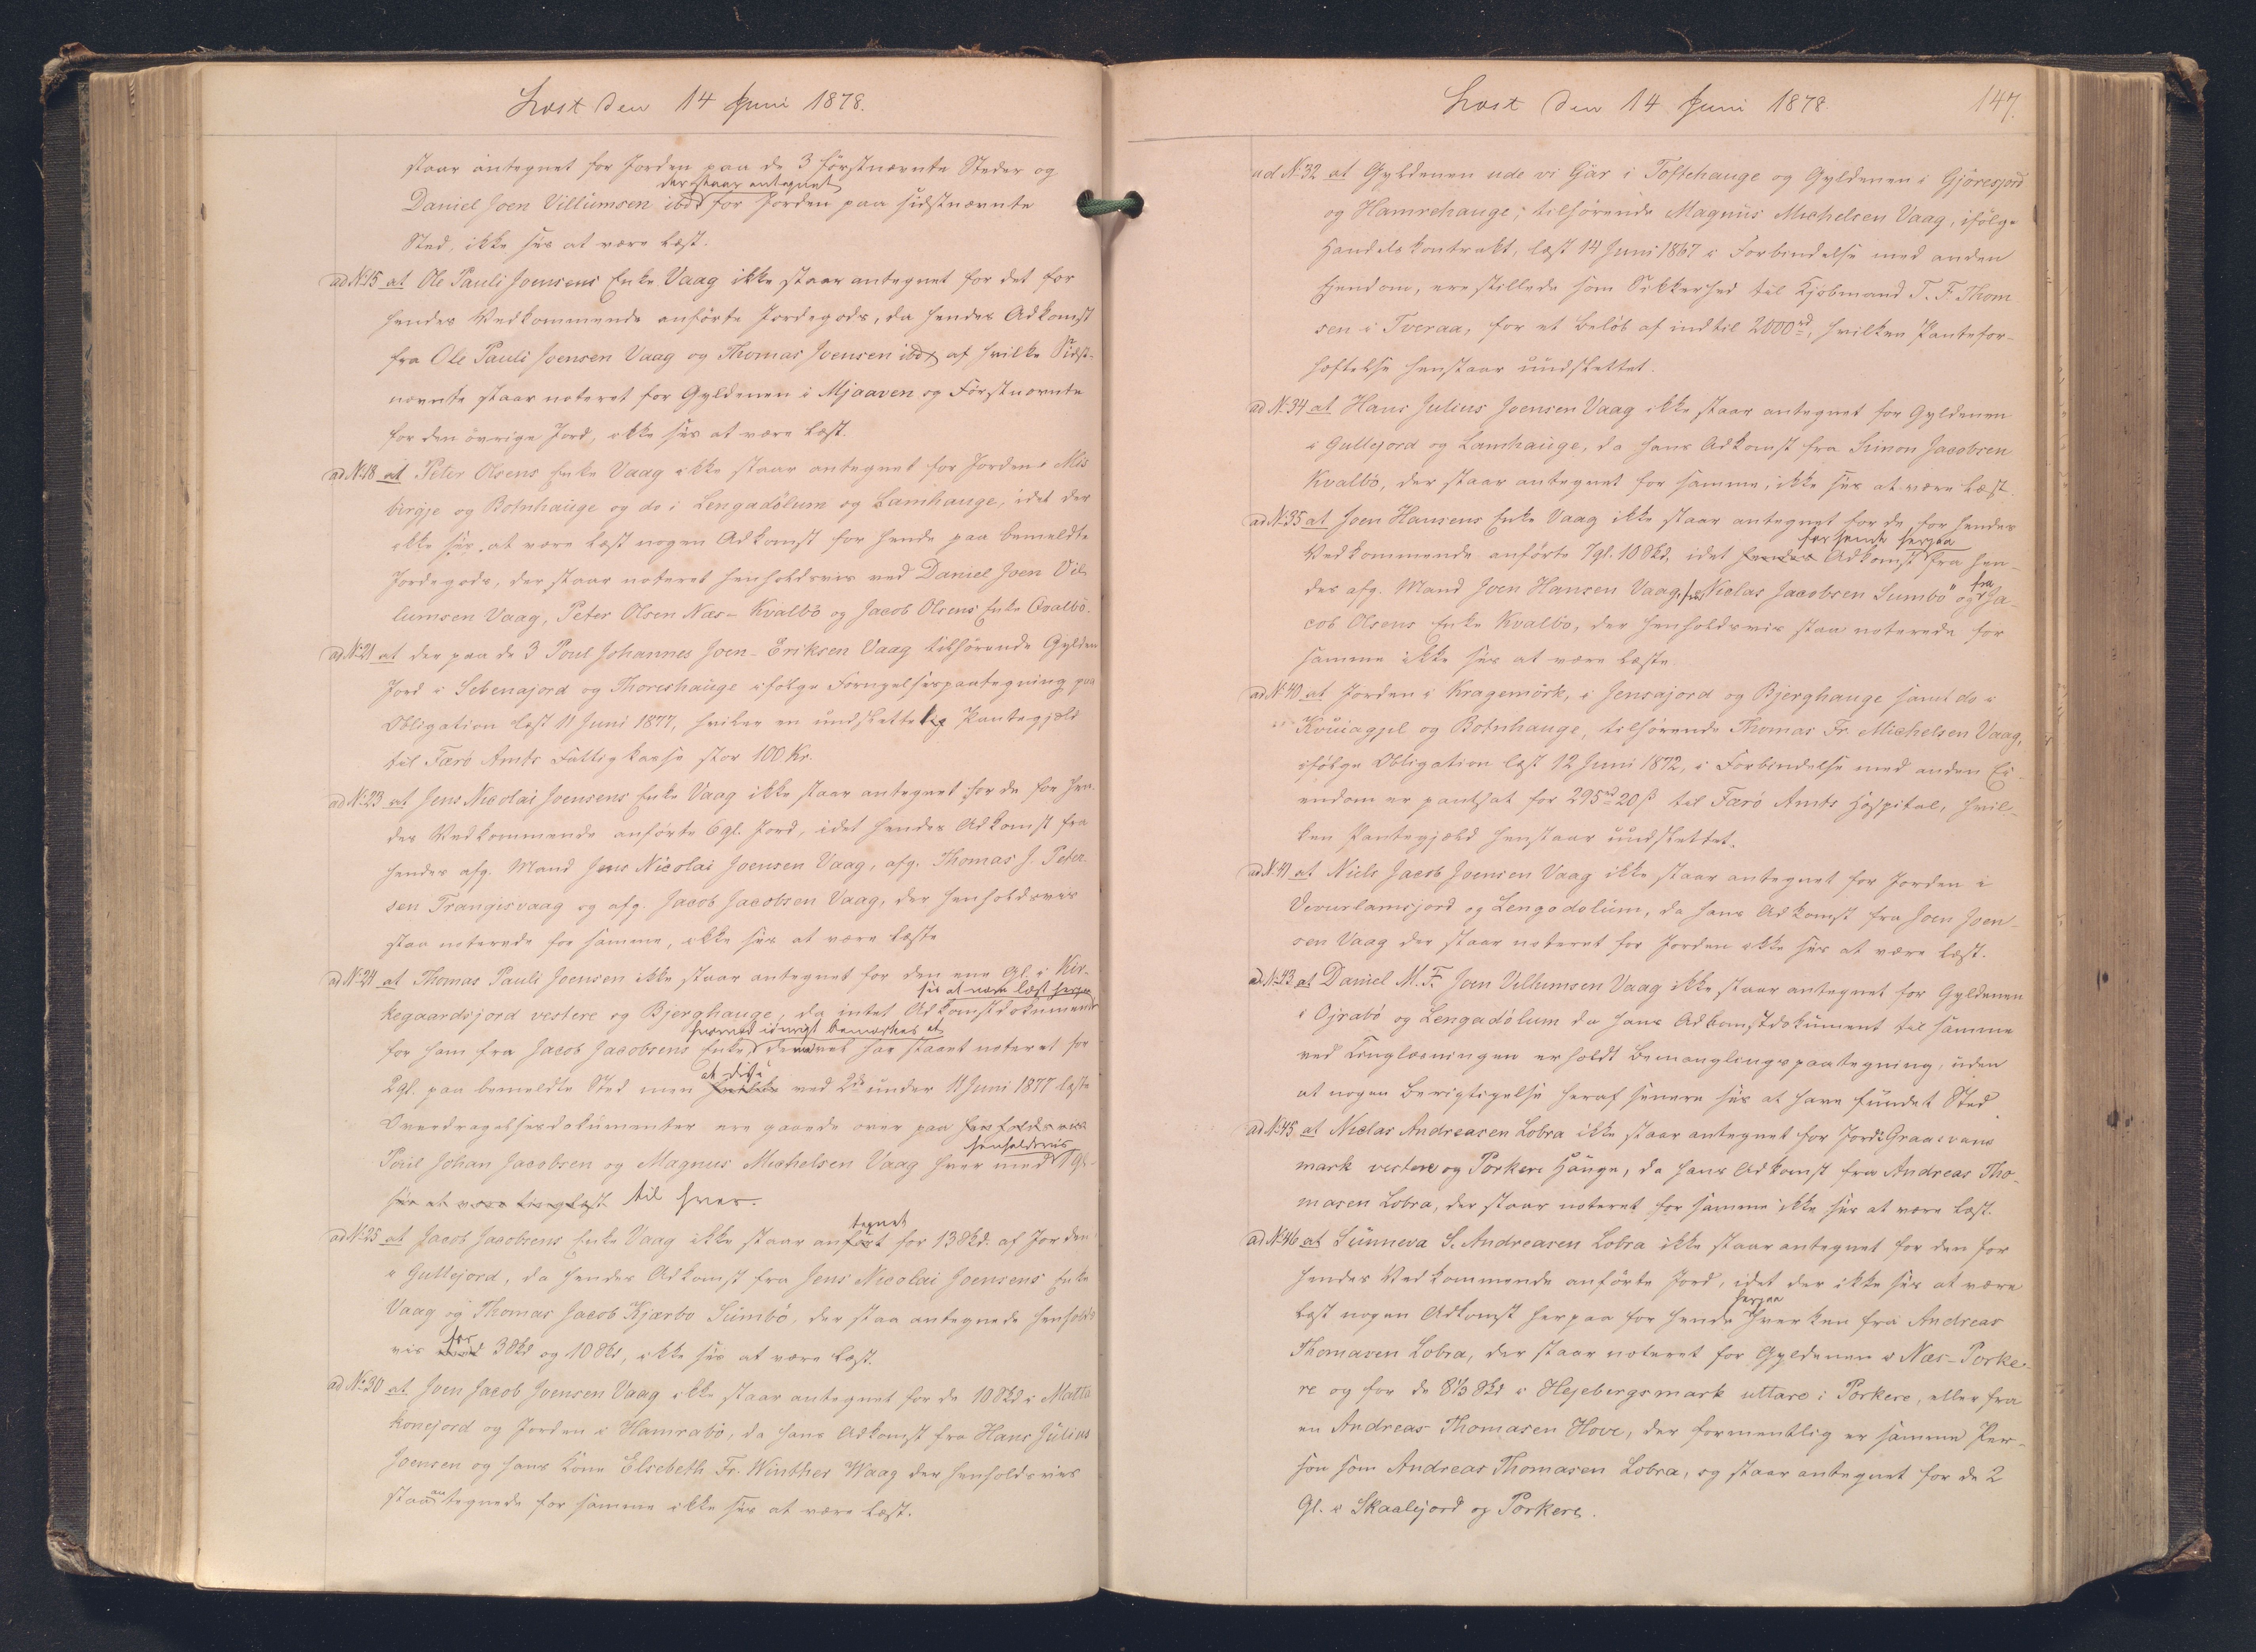 Læst den 14 Juni 1878.
staar antegnet for Jorden paa de 3 förstnævnte Steder og
der staar antegnet
Daniel Joen Villumsen ibd for Jorden paa sidstnævnte
Sted, ikke sees at være læst.
ad N: 15 at Ole Pauli Joensens Enke Vaag ikke staar antegnet for det for
hendes Vedkommende anförte Jordegods, da hendes Adkomst
fra Ole Pauli Joensen Vaag og Thomas Joensen ibd, af hvilke Sidst-
nævnte staar noteret for Gyldenen i Mjaaven og Förstnævnte
for den övrige Jord, ikke sees at være læst.
ad N: 18 at Peter Olsens Enke Vaag ikke staar antegnet for Jorden i Mis
birgje og Botnhauge og do i Lengadölum og Lamhauge, idet der
ikke sees at være læst nogen Adkomst for hende paa bemeldte
Jordegods, der staar noteret henholdsvis ved Daniel Joen Vil-
lumsen Vaag, Peter Olsen Næs-Kvalbö og Jacob Olsens Enke Qvalbö.
ad N: 21 at der paa de 3 Poul Johannes Joen-Eriksen Vaag tilhörende Gylden
Jord i Sebenajord og Thoreshauge ifölge Fornyelsespaategning paa
Obligation læst 11 Juni 1877, hviler en udslettelig Pantegjæld
til Færö Amts Fattigkasse stor 100 Kr.
ad N: 23 at Jens Nicolai Joensens Enke Vaag ikke staar antegnet for de for hen-
des Vedkommende anförte 6 gl. Jord, idet hendes Adkomst fra
hendes afg. Mand Jens Nicolai Joensen Vaag, afg. Thomas J. Peter-
sen Trangisvaag og afg. Jacob Jacobsen Vaag, der henholdsvis
staa noterede for samme, ikke sees at være læste
ad N: 24 at Thomas Pauli Joensen ikke staar antegnet for den ene Gl. i Kir-
sees at være læst herpaa
kegaardsjord vestere og Bjerghauge, da intet Adkomstdokument
hvorved iövrigt bemærkes at
for ham fra Jacob Jacobsens Enke, har staaet noteret for
2 gl. paa bemeldte Sted men
at disse
ved 2de under 11 Juni 1877 læste
Overdragelsesdokumenter ere gaaede over paa henholdsvis
henholdsvis
Poul Johan Jacobsen og Magnus Michelsen Vaag hver med 1 Gl.
sees at være tinglæst til hver.
tegnet
ad N: 25 at Jacob Jacobsens Enke Vaag ikke staar anfört for 13 Skd. af Jorden
i Gullejord, da hendes Adkomst fra Jens Nicolai Joensens Enke
Vaag og Thomas Jacob Kjærbo Sumbö, der staa antegnede henholds
for
vis med 3 Skd og 10 Skd, ikke sees at være læst.
ad N: 30 at Joen Jacob Joensen Vaag ikke staar antegnet for de 10 Skd i Matta
konejord og Jorden i Hamrabö, da hans Adkomst fra Hans Julius
Joensen og hans Kone Elsebeth Fr. Winther Waag der henholdsvis
staa antegnede for samme ikke sees at være læst.
Læst den 14 Juni 1878. 147.
ad N: 32 at Gyldenen ude vi Gjär i Toftehauge og Gyldenen i Gjöresjord
og Hamrehauge, tilhörende Magnus Michelsen Vaag, ifölge
Handelskontrakt, læst 14 Juni 1867 i Forbindelse med anden
Ejendom, ere stillede som Sikkerhed til Kjöbmand T. F. Thom
sen i Tveraa, for et Belöb af indtil 2000 rd, hvilken Pantefor-
hæftelse henstaar uudslettet.
ad N: 34 at Hans Julius Joensen Vaag ikke staar antegnet for Gyldenen
i Gullejord og Lamhauge, da hans Adkomst fra Simon Jacobsen
Kvalbö, der staar antegnet for samme, ikke sees at være læst.
ad N: 35 at Joen Hansens Enke Vaag ikke staar antegnet for de for hendes
for hende herpaa
Vedkommende anförte 7 gl. 10 Skd, idet hendes Adkomst fra hen-
des afg. Mand Joen Hansen Vaag, fra Niclas Jacobsen Sumbö og fra Ja-
cob Olsens Enke Kvalbö, der henholdsvis staa noterede for
samme ikke sees at være læste.
ad N: 40 at Jorden i Kragemörk, i Jensajord og Bjerghauge samt do i
Kvuiagjil og Botnhauge, tilhörende Thomas Fr. Michelsen Vaag,
ifölge Obligation læst 12 Juni 1872, i Forbindelse med anden Ei-
endom er pantsat for 295 rd 20 ß til Færö Amts Hospital, hvil-
ken Pantegjæld henstaar uudslettet.
ad N: 41 at Niels Jacob Joensen Vaag ikke staar antegnet for Jorden i
Vevurlamsjord og Lengodolum, da hans Adkomst fra Joen Joen-
sen Vaag der staar noteret for Jorden ikke sees at være læst.
ad N: 43 at Daniel M. F. Joen Villumsen Vaag ikke staar antegnet for Gyldenen
i Ojrabö og Lengadölum da hans Adkomstdokument til samme
ved Tinglæsningen erholdt Bemanglingspaategning, uden
at nogen Berigtigelse heraf senere sees at have fundet Sted.
ad N: 45 at Niclas Andreasen Lobra ikke staar antegnet for Jord i Graasvans
mark vestere og Porkere Hauge, da hans Adkomst fra Andreas Tho-
masen Lobra, der staar noteret for samme ikke sees at være læst.
ad N: 46 at Sunneva S. Andreasen Lobra ikke staar antegnet for den for
hendes Vedkommende anförte Jord, idet der ikke sees at være
herpaa
læst nogen Adkomst herpaa for hende hverken fra Andreas
Thomasen Lobra, der staar noteret for Gyldenen i Næs-Porke-
re og for de 8 1/3 Skd i Hejebergsmark uttare i Porkere, eller fra
en Andreas Thomasen Hove, der formentlig er samme Per-
son som Andreas Thomasen Lobra, og staar antegnet for de 2
Gl. i Skaalejord og Porkere.